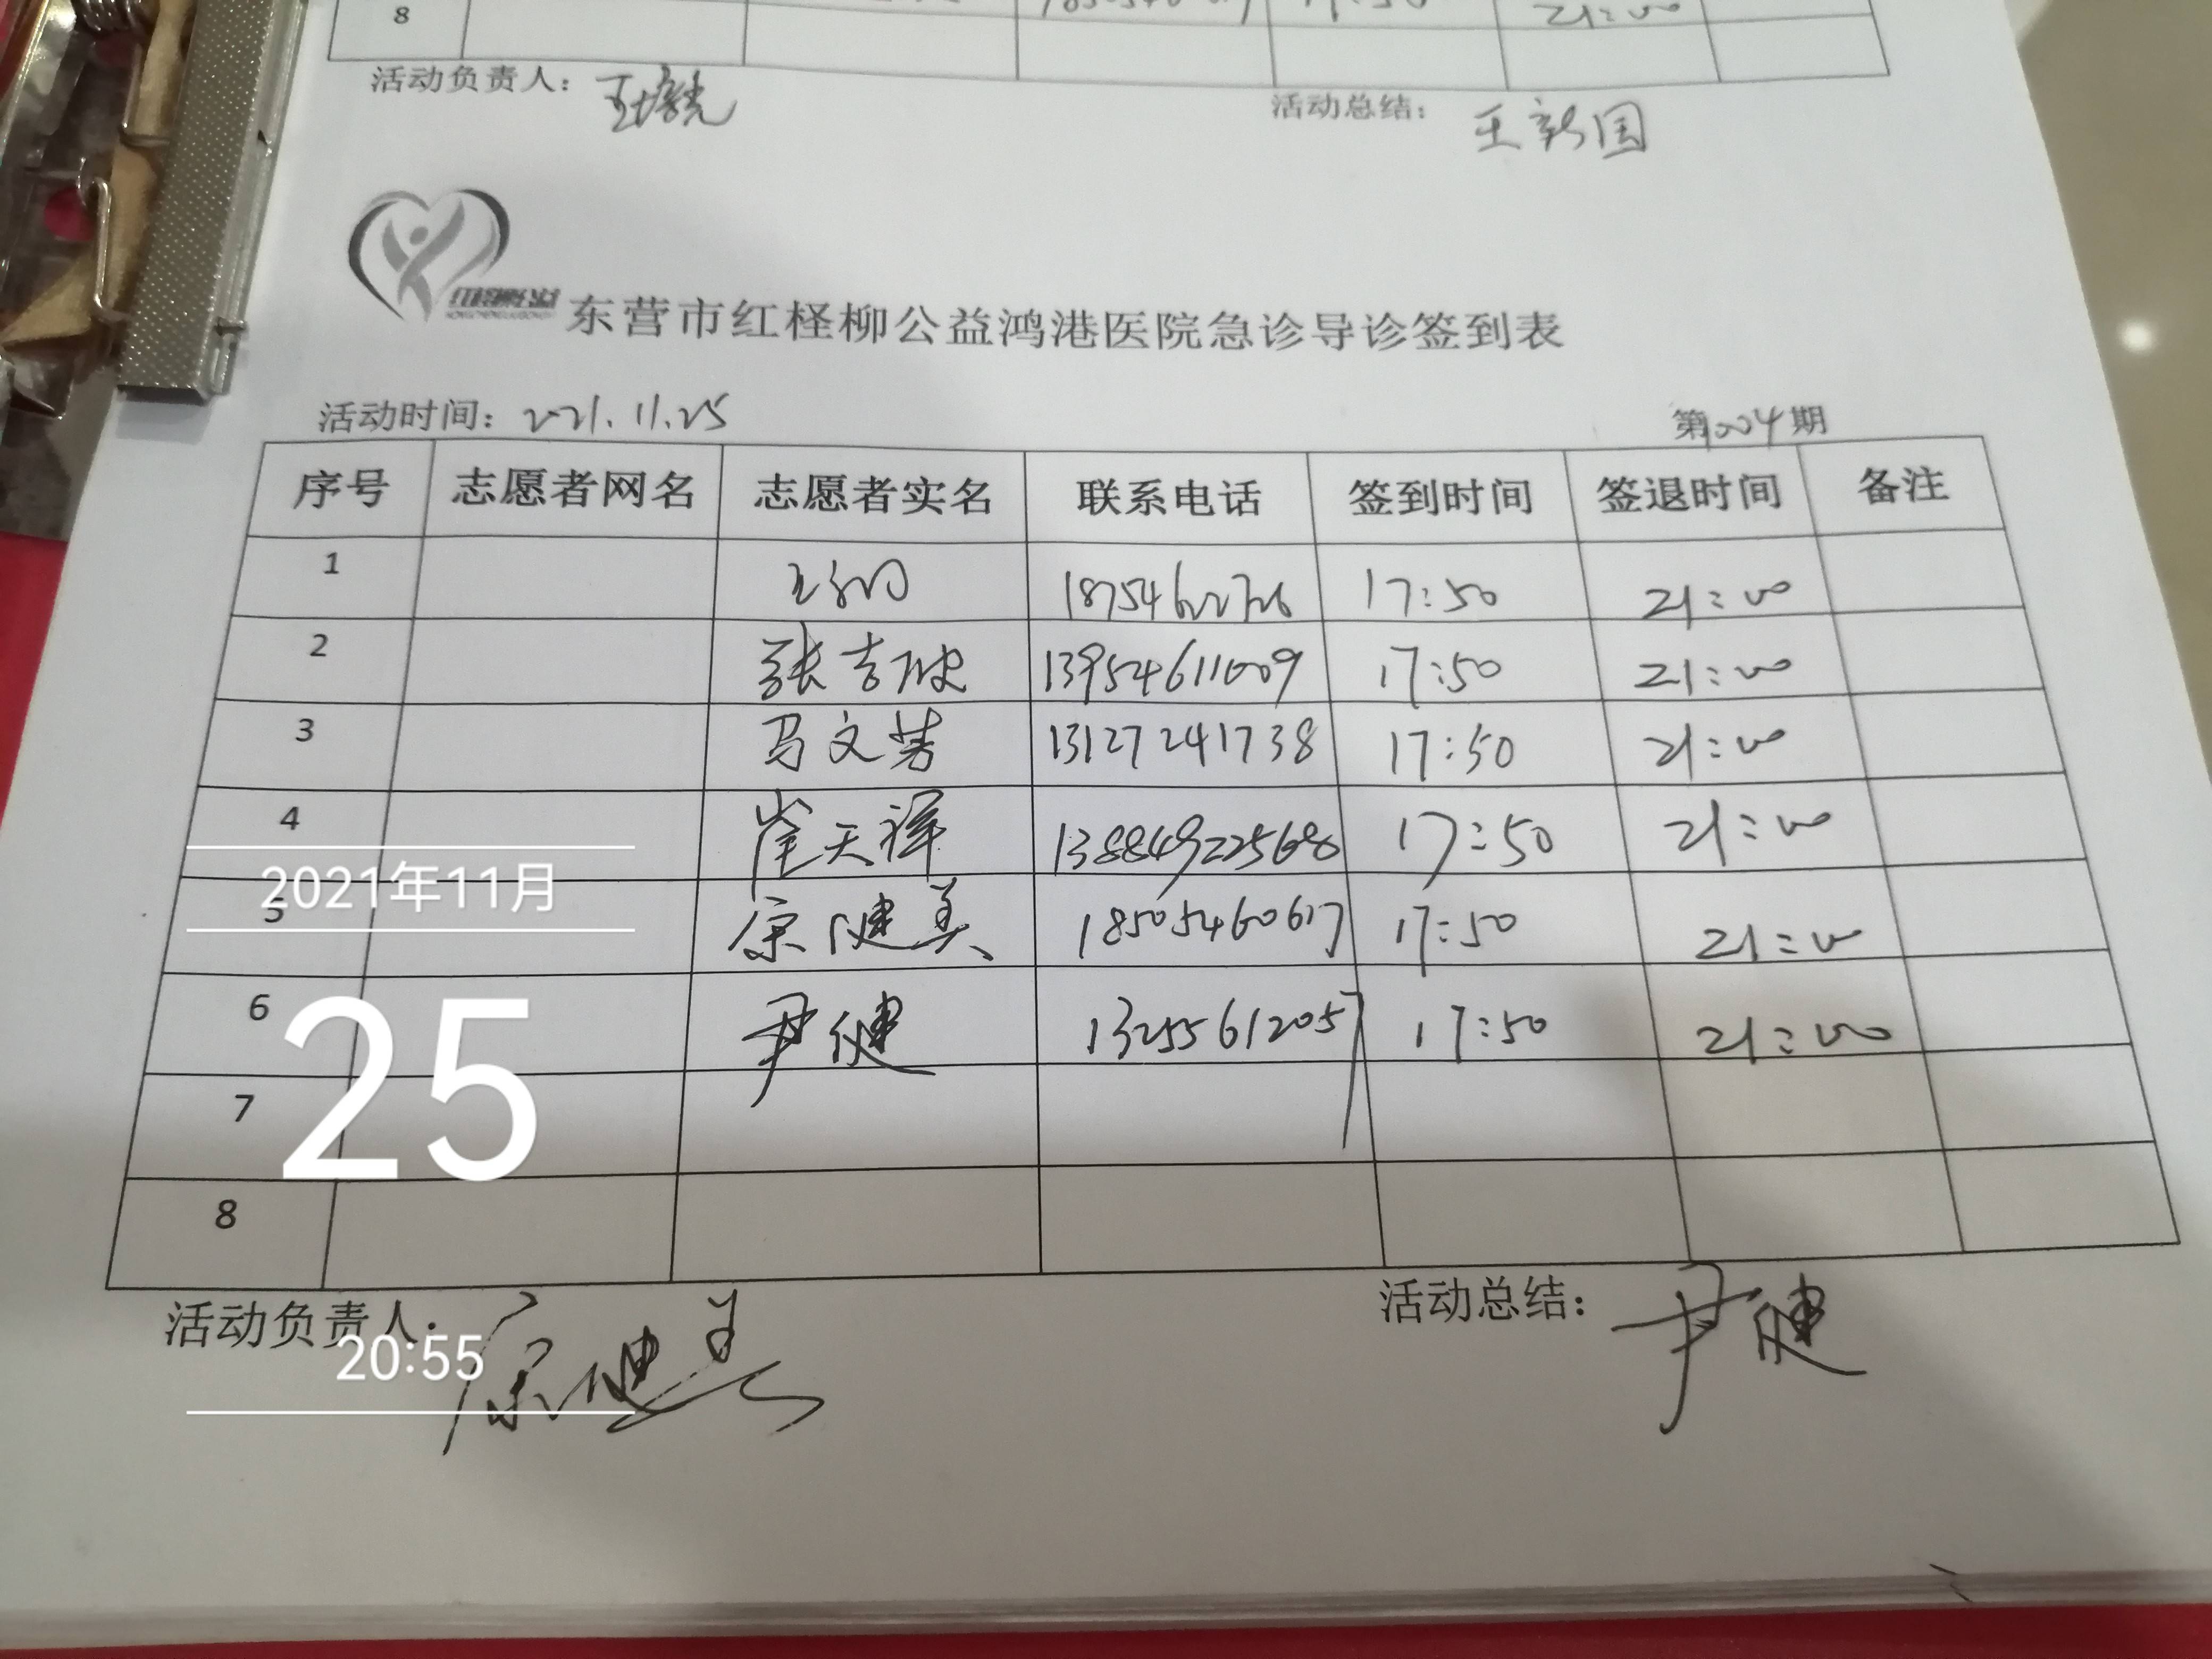 8 21:00
活动负责人： 活动总结： 王新国
东营市红柽柳公益鸿港医院急诊导诊签到表
活动时间：2021.11.25 第2004期
序号 志愿者网名 志愿者实名 联系电话 签到时间 签退时间 备注
1 17:50 21:00
2 13954611009 17:50 21:00
3 马文芳 13127241738 17:50 21:00
4 崔天祥 17:50 21:00
5 宗健美 18505460617 17:50 21:00
6 尹健 13255612057 17:50 21:00
7
8
活动负责人：宗健美 活动总结：尹健
2021年11月
25
20:55